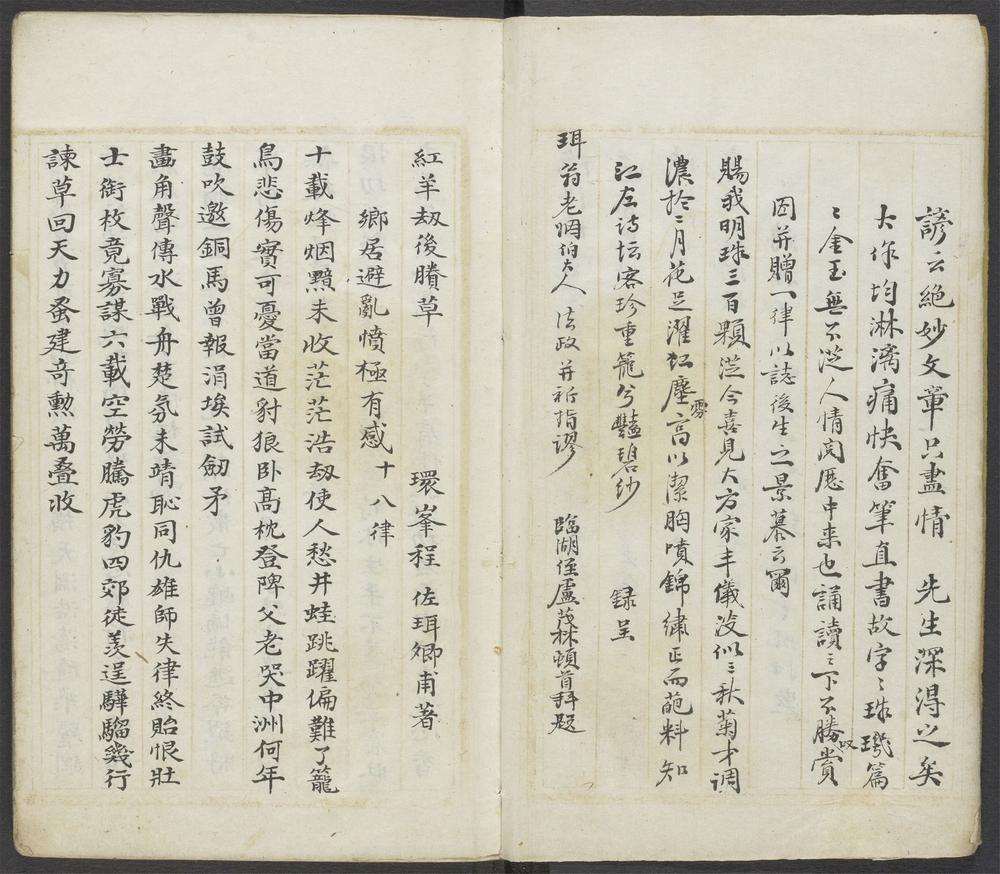 諺云絶妙文章只盡情　先生深得之矣
大作均淋漓痛快奮筆直書故字〻珠璣篇
〻金玉無不從人情閱歷中来也誦讀之下不勝歎賞
因并贈一律以誌後生之景慕云爾
賜我明珠三百顆從今喜見大方家丰儀淡似〻秋菊才調
濃於二月花足濯紅塵高以潔胸噴錦繡正而葩料知
江左詩坛客珍重籠兮豔碧紗　録呈
珥翁老伯大人　法政并祈指謬　臨湖侄盧茂森頓首拜題
紅羊刼後賸草　環峯程佐珥卿甫著
鄉居避亂憤極有感十八律
十載烽烟黯未收茫茫浩刼使人愁井蛙跳躍偏難了籠
鳥悲傷實可憂當道豺狼卧髙枕登陴父老哭中洲何年
鼓吹邀銅馬曾報涓埃試劒矛
畫角聲傳水戰舟楚氛未靖恥同仇雄師失律終貽恨壯
士銜枚竟寡謀六載空勞騰虎豹四郊徒羨逞驊騮幾行
諫草回天力蚤建奇勲萬叠收